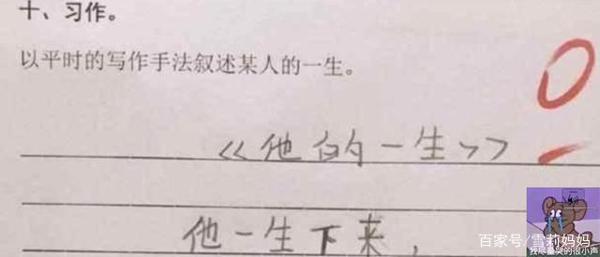 十、习作。
以平时的写作手法叙述某人的一生。
0
《他的一生》
他一生下来，
百家号/雪莉妈妈